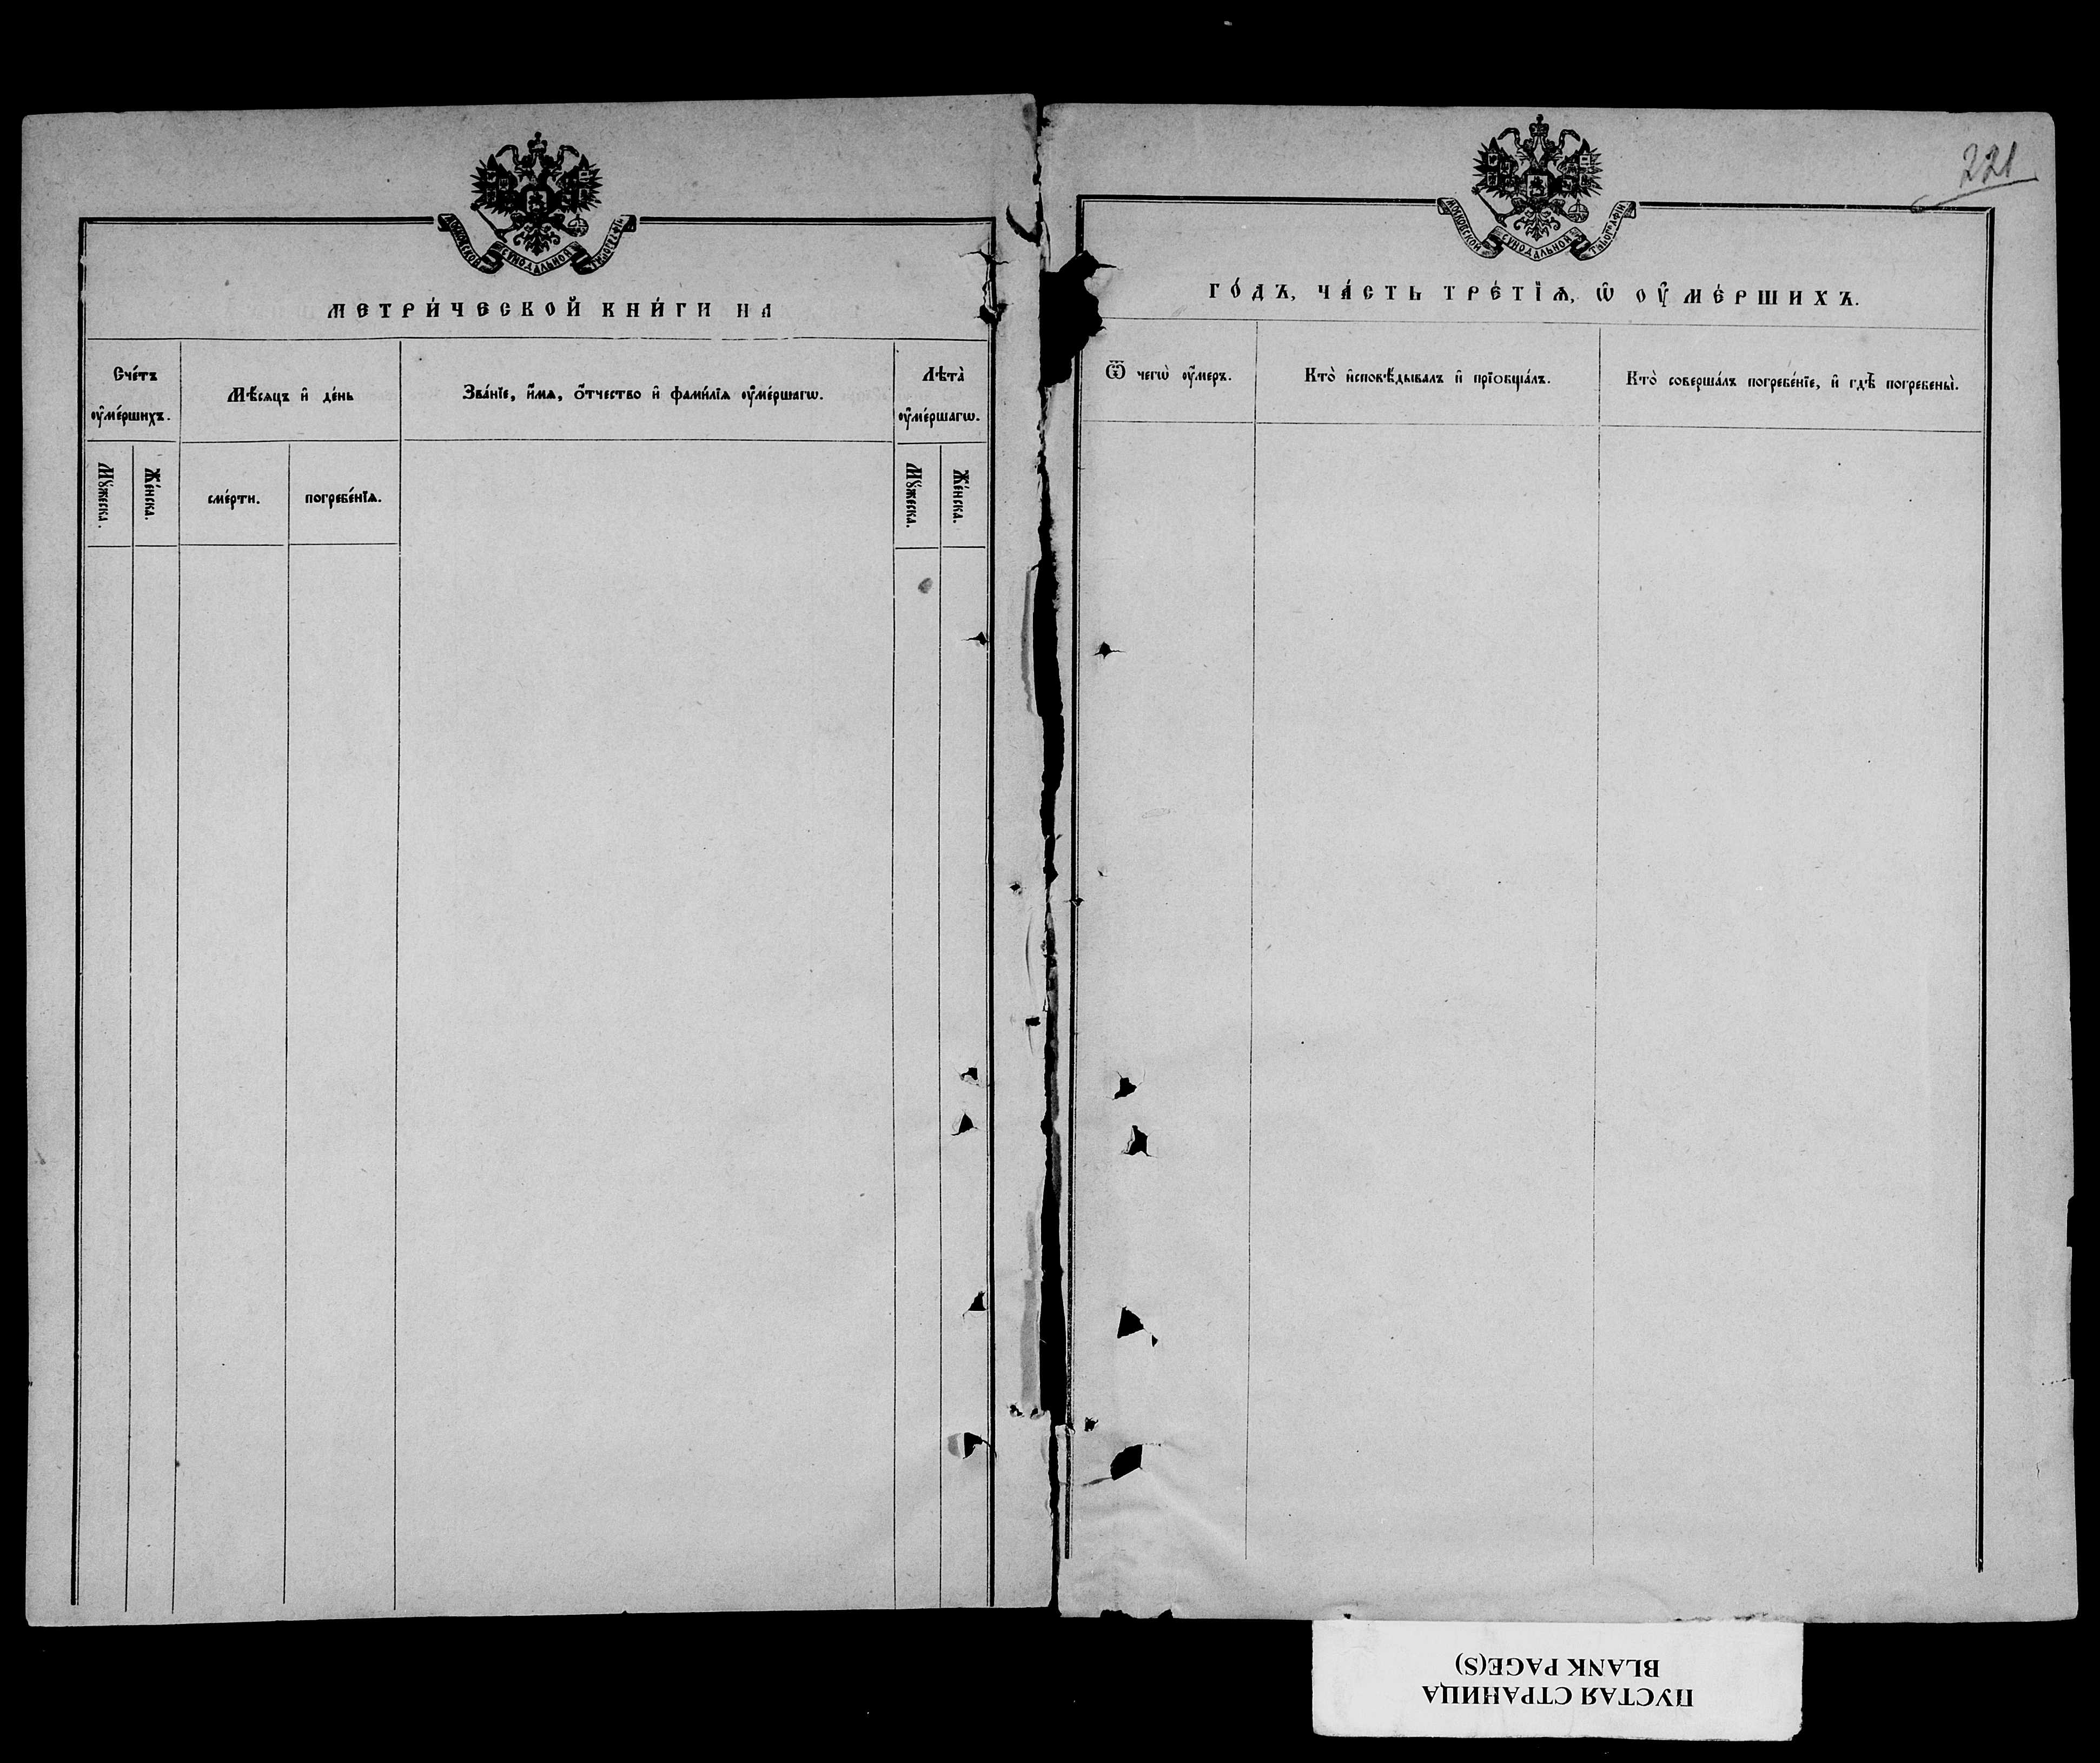 МОСКОВСКОЙ СУНОДАЛЬНОЙ ТИПОГРАФІИ
МЕТРИ́ЧЕСКОЙ КНИ́ГИ НА
Сче́тъ
ᲂу҆ме́ршихъ.
Мѣ́сяцъ и҆ де́нь
Зва́нїе, и҆́мѧ, ѻ҆́тчество и҆ фами́лїѧ ᲂу҆ме́ршагѡ.
Лѣта̀
ᲂу҆ме́ршагѡ.
Мꙋ́жеска.
Же́нска.
сме́рти.
погребе́нїѧ.
Мꙋ́жеска.
Же́нска.
221
МОСКОВСКОЙ СУНОДАЛЬНОЙ ТИПОГРАФІИ
ГО́ДЪ, ЧА́СТЬ ТРЕ́ТЇѦ, Ѡ҆ ОУ҆МЕ́РШИХЪ.
Ѿ чегѡ̀ ᲂу҆́меръ.
Кто̀ и҆сповѣ́дывалъ и҆ прїѻбща́лъ.
Кто̀ соверша́лъ погребе́нїе, и҆ гдѣ̀ погребены̀.
ПУСТАЯ СТРАНИЦА
BLANK PAGE(S)